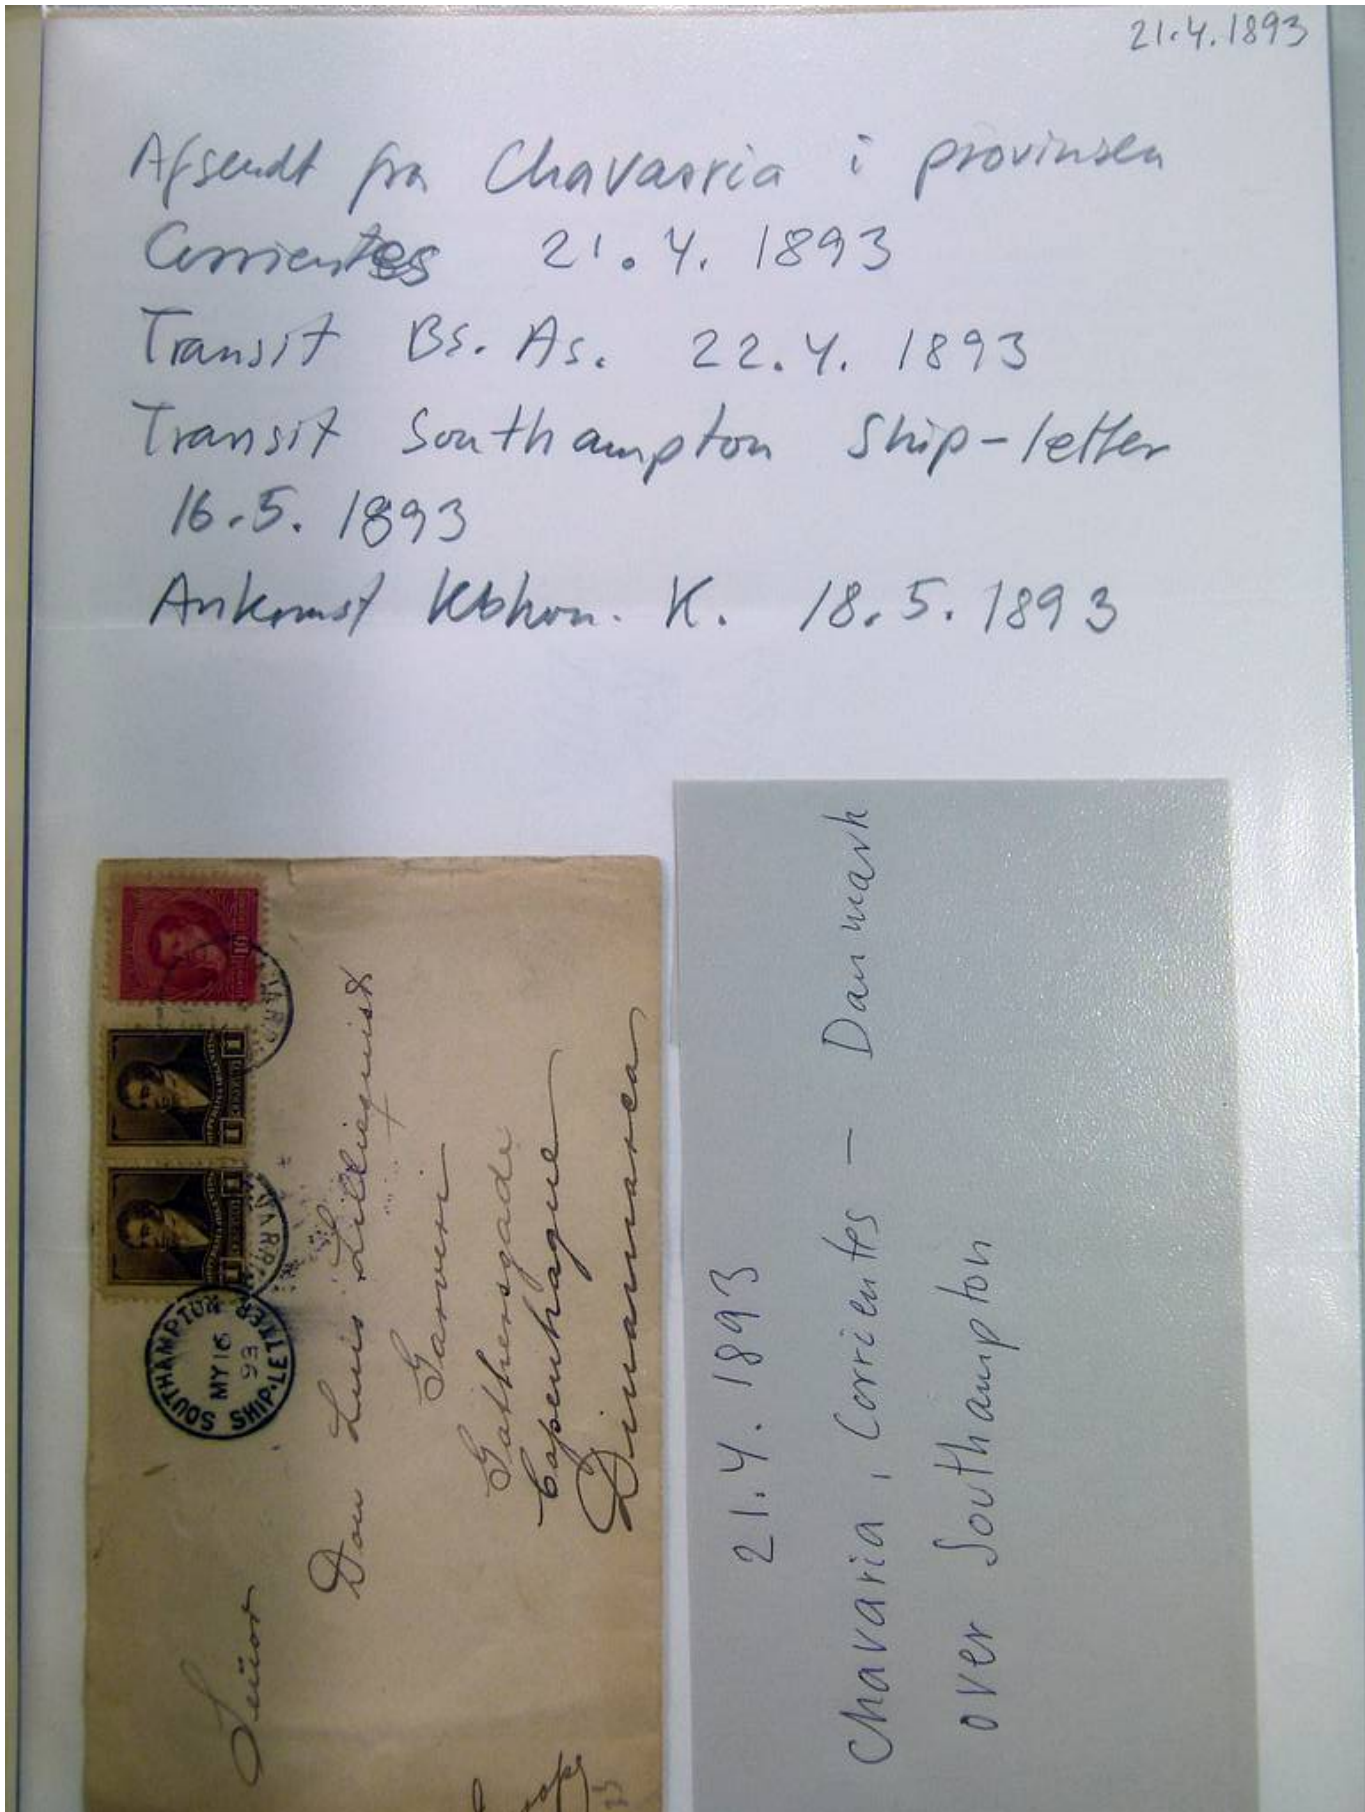 21.4.1893
Afsendt fra Chavarria i provinsen
Corrientes 21.4.1893
Transit Bs. As. 22.4.1893
Transit Southampton Ship-letter
16.5.1893
Ankomst Kbhvn. K. 18.5.1893
SOUTHAMPTON
MY 16
93
SHIP-LETTER
Señor
Don Luis Lilliequist
Garveri
Gothersgade
Copenhague
Dinamarca
21.4.1893
Chavaria, Corrientes – Danmark
over Southampton